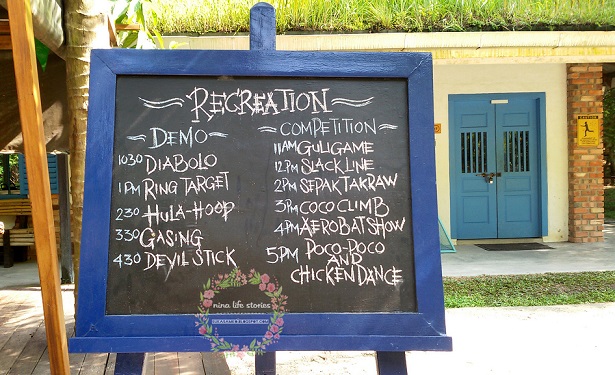 RECREATION
DEMO
1030 DIABOLO
1PM RING TARGET
230 HULA-HOOP
330 GASING
430 DEVIL STICK
COMPETITION
11AM GULIGAME
12PM SLACKLINE
2PM SEPAK TAKRAW
3PM COCO CLIMB
4PM AEROBAT SHOW
5PM POCO-POCO
AND
CHICKEN DANCE
nina life stories